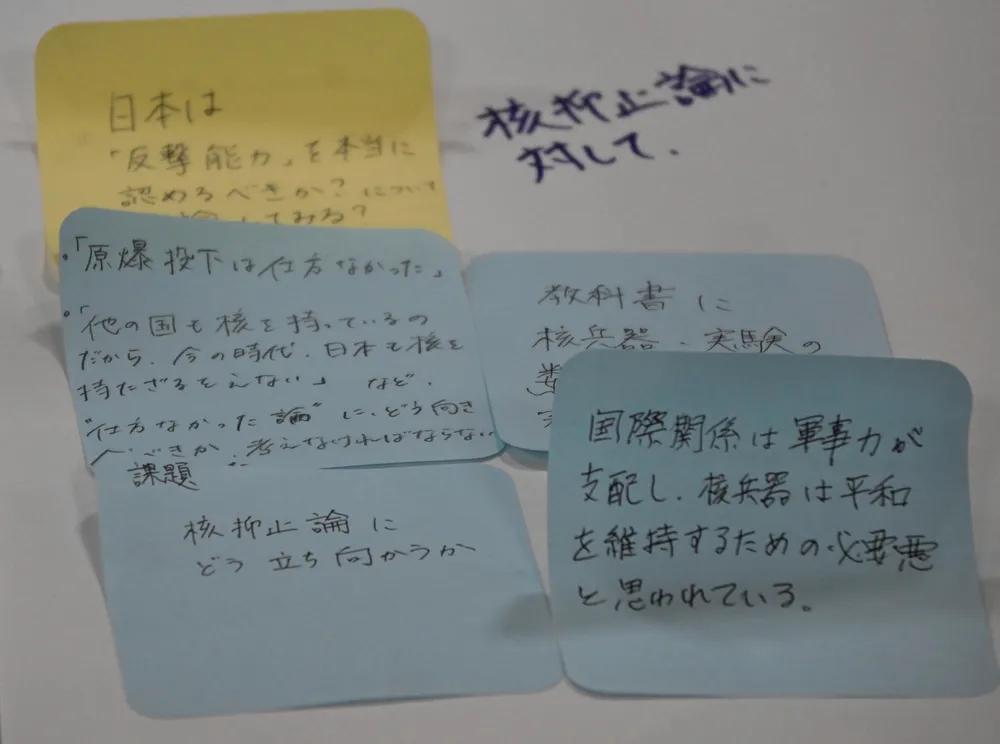 核抑止論に
対して.
日本は
「反撃能力」を本当に
認めるべきか?について
してみる?
・「原爆投下は仕方なかった」
・「他の国も核を持っているの
だから、今の時代、日本も核を
持たざるをえない」 など、
"仕方なかった論"に、どう向き
べきか、考えなければならない
教科書に
核兵器、実験の
課題
核抑止論に
どう立ち向かうか
国際関係は軍事力が
支配し、核兵器は平和
を維持するための必要悪
と思われている。